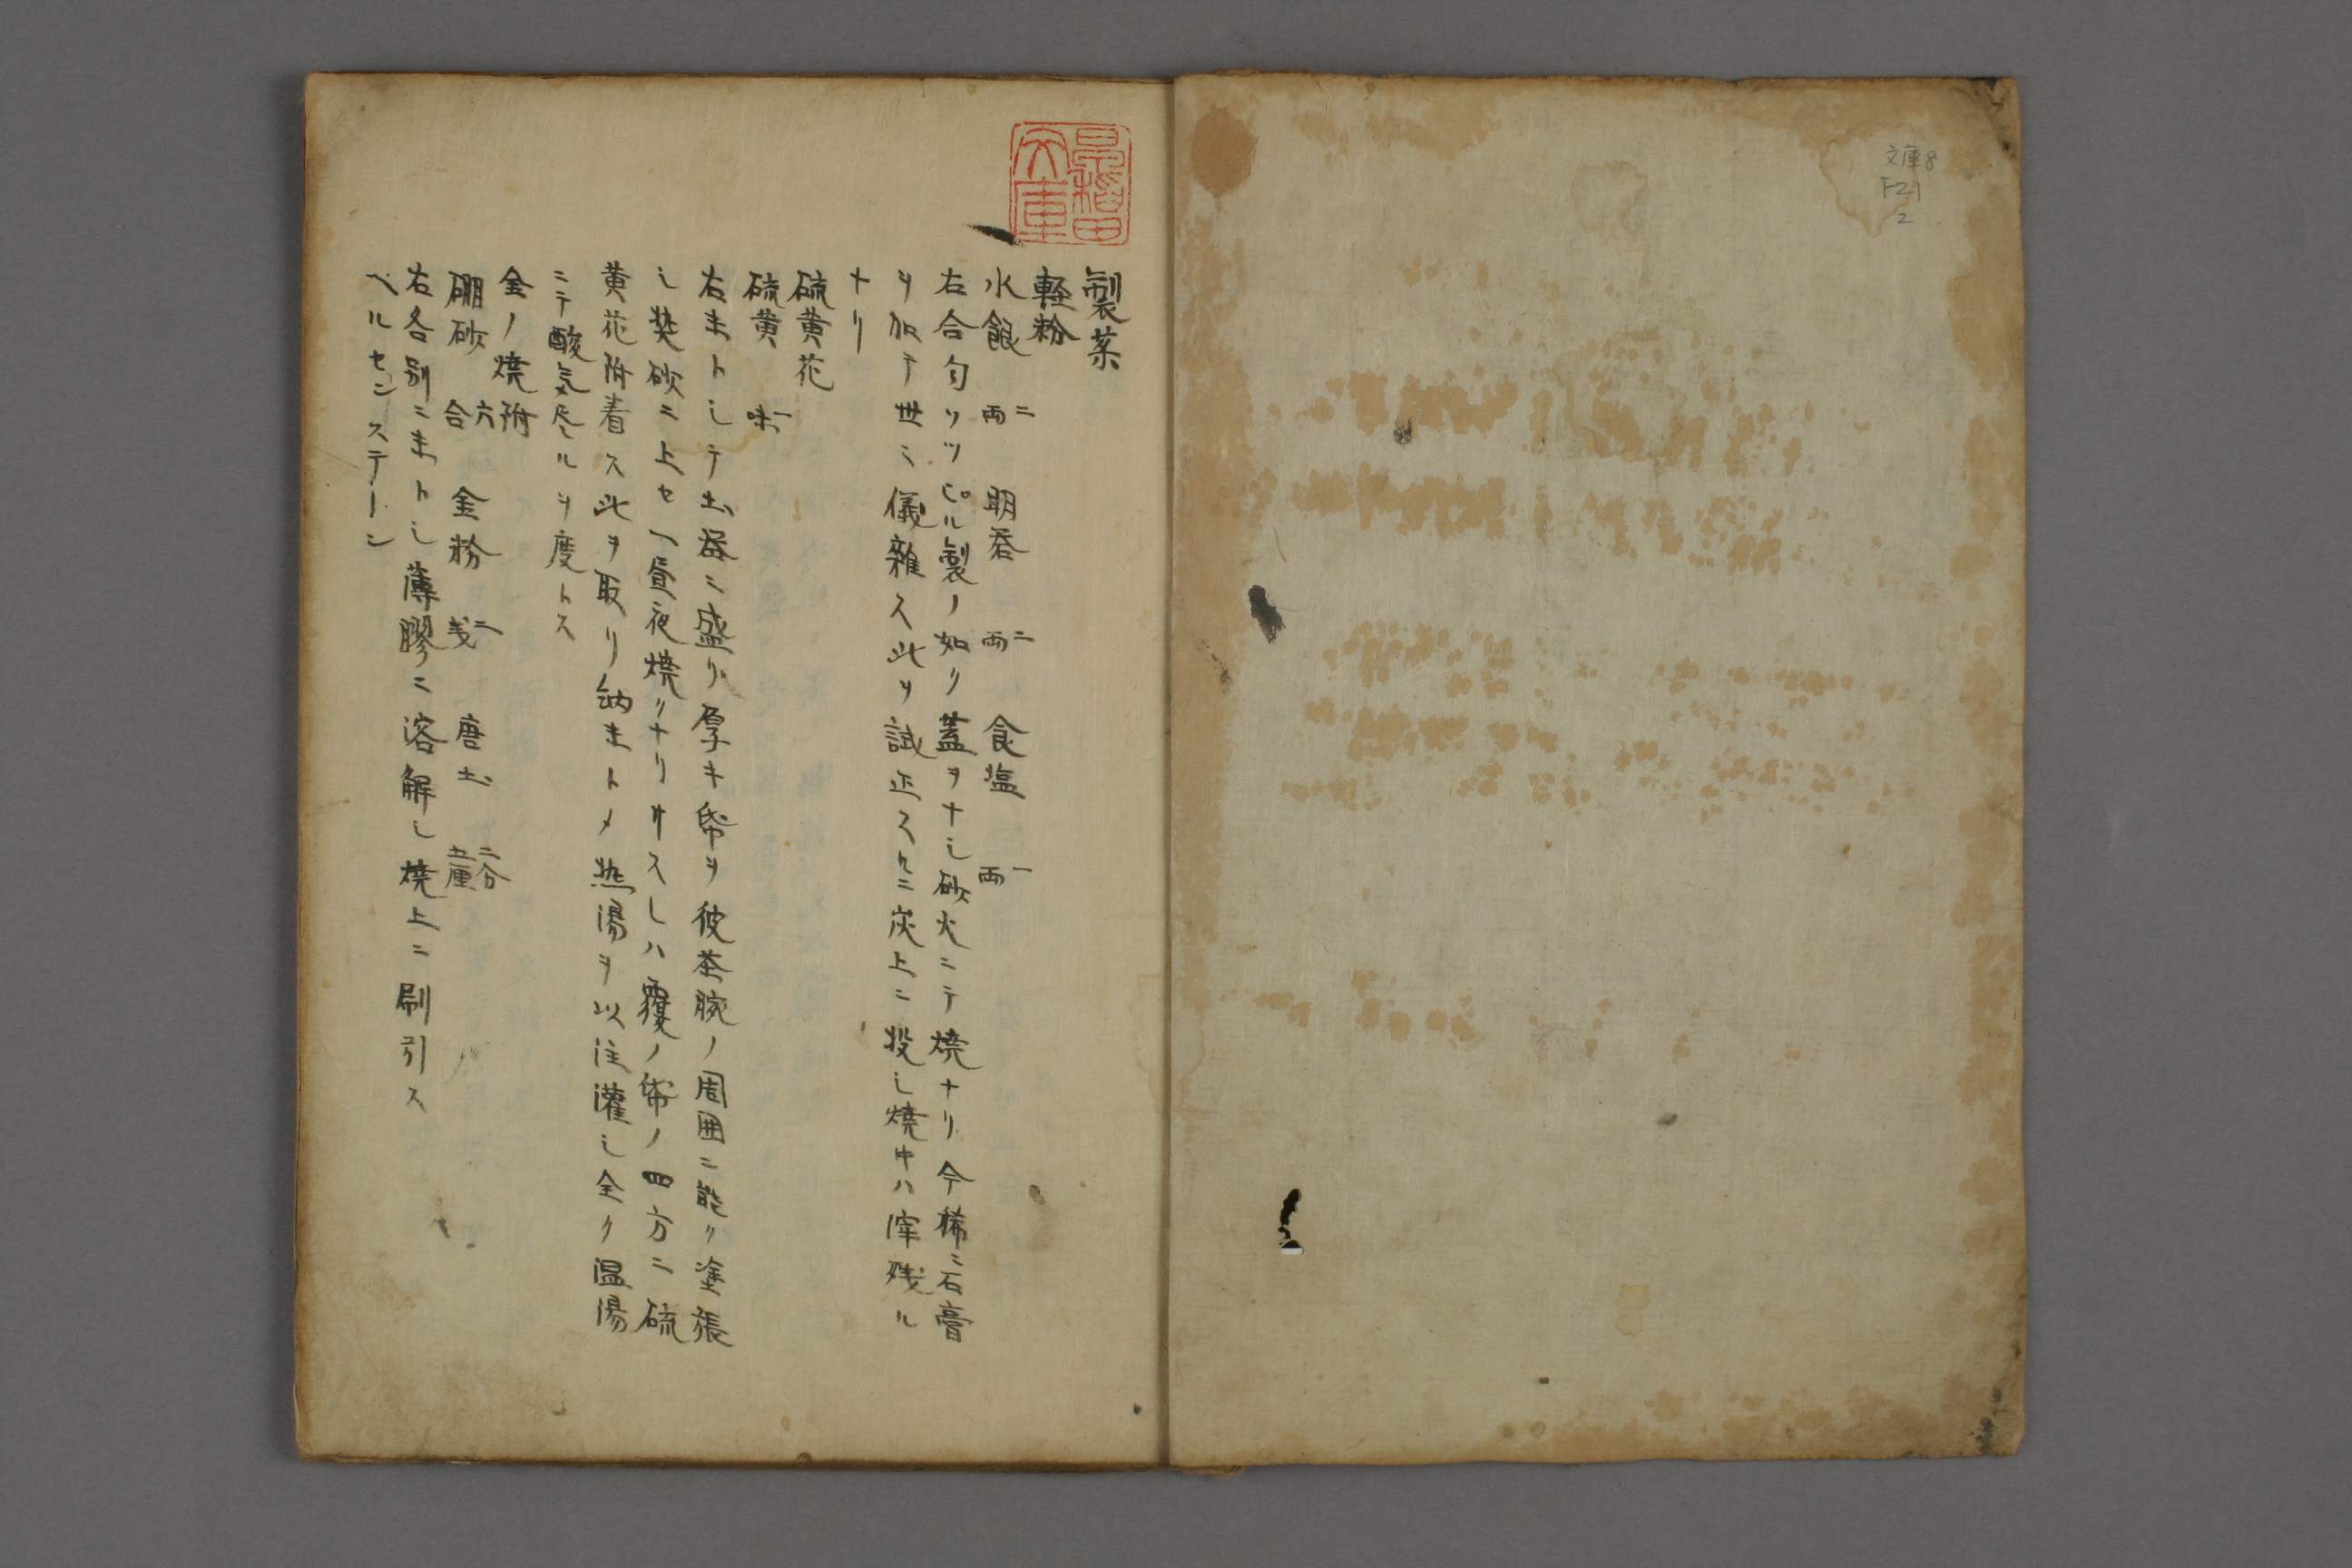 文庫8
F21
2
早稲田
文庫
製薬
軽粉
水銀 二両 明礬 二両 食塩 一両
右合匀リツピル製ノ如リ蓋ヲナシ砂火ニテ焼ナリ今稀ニ石膏
ヲ似テ世ミ儀雑ス此ヲ試正スルニ炭上ニ投シ焼キハ滓残ル
ナリ
硫黄花
硫黄 一味
右末トシテ土器ニ盛リ厚キ帋ヲ彼茶腕ノ周囲ニ能ク塗張
シ熱砂ニ上セ一昼夜焼クナリサスレハ覆ノ帋ノ四方ニ硫
黄花附着ス此ヲ取リ納末トメ熱湯ヲ以注灌シ全ク温湯
ニテ酸気尽ルヲ度トス
金ノ焼附
硼砂 六合 金粉 二戔 唐土 二分五厘
右各別ニ末トシ薄膠ニ溶解シ焼上ニ刷引ス
ベルセンステーン